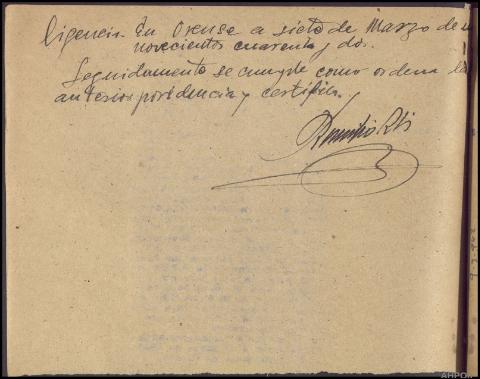 Digencia. En Orense a siete de Marzo de
novecientos cuarenta y dos.
Seguidamente se cumple como ordena la
anterior providencia y certifico.
AHPOU